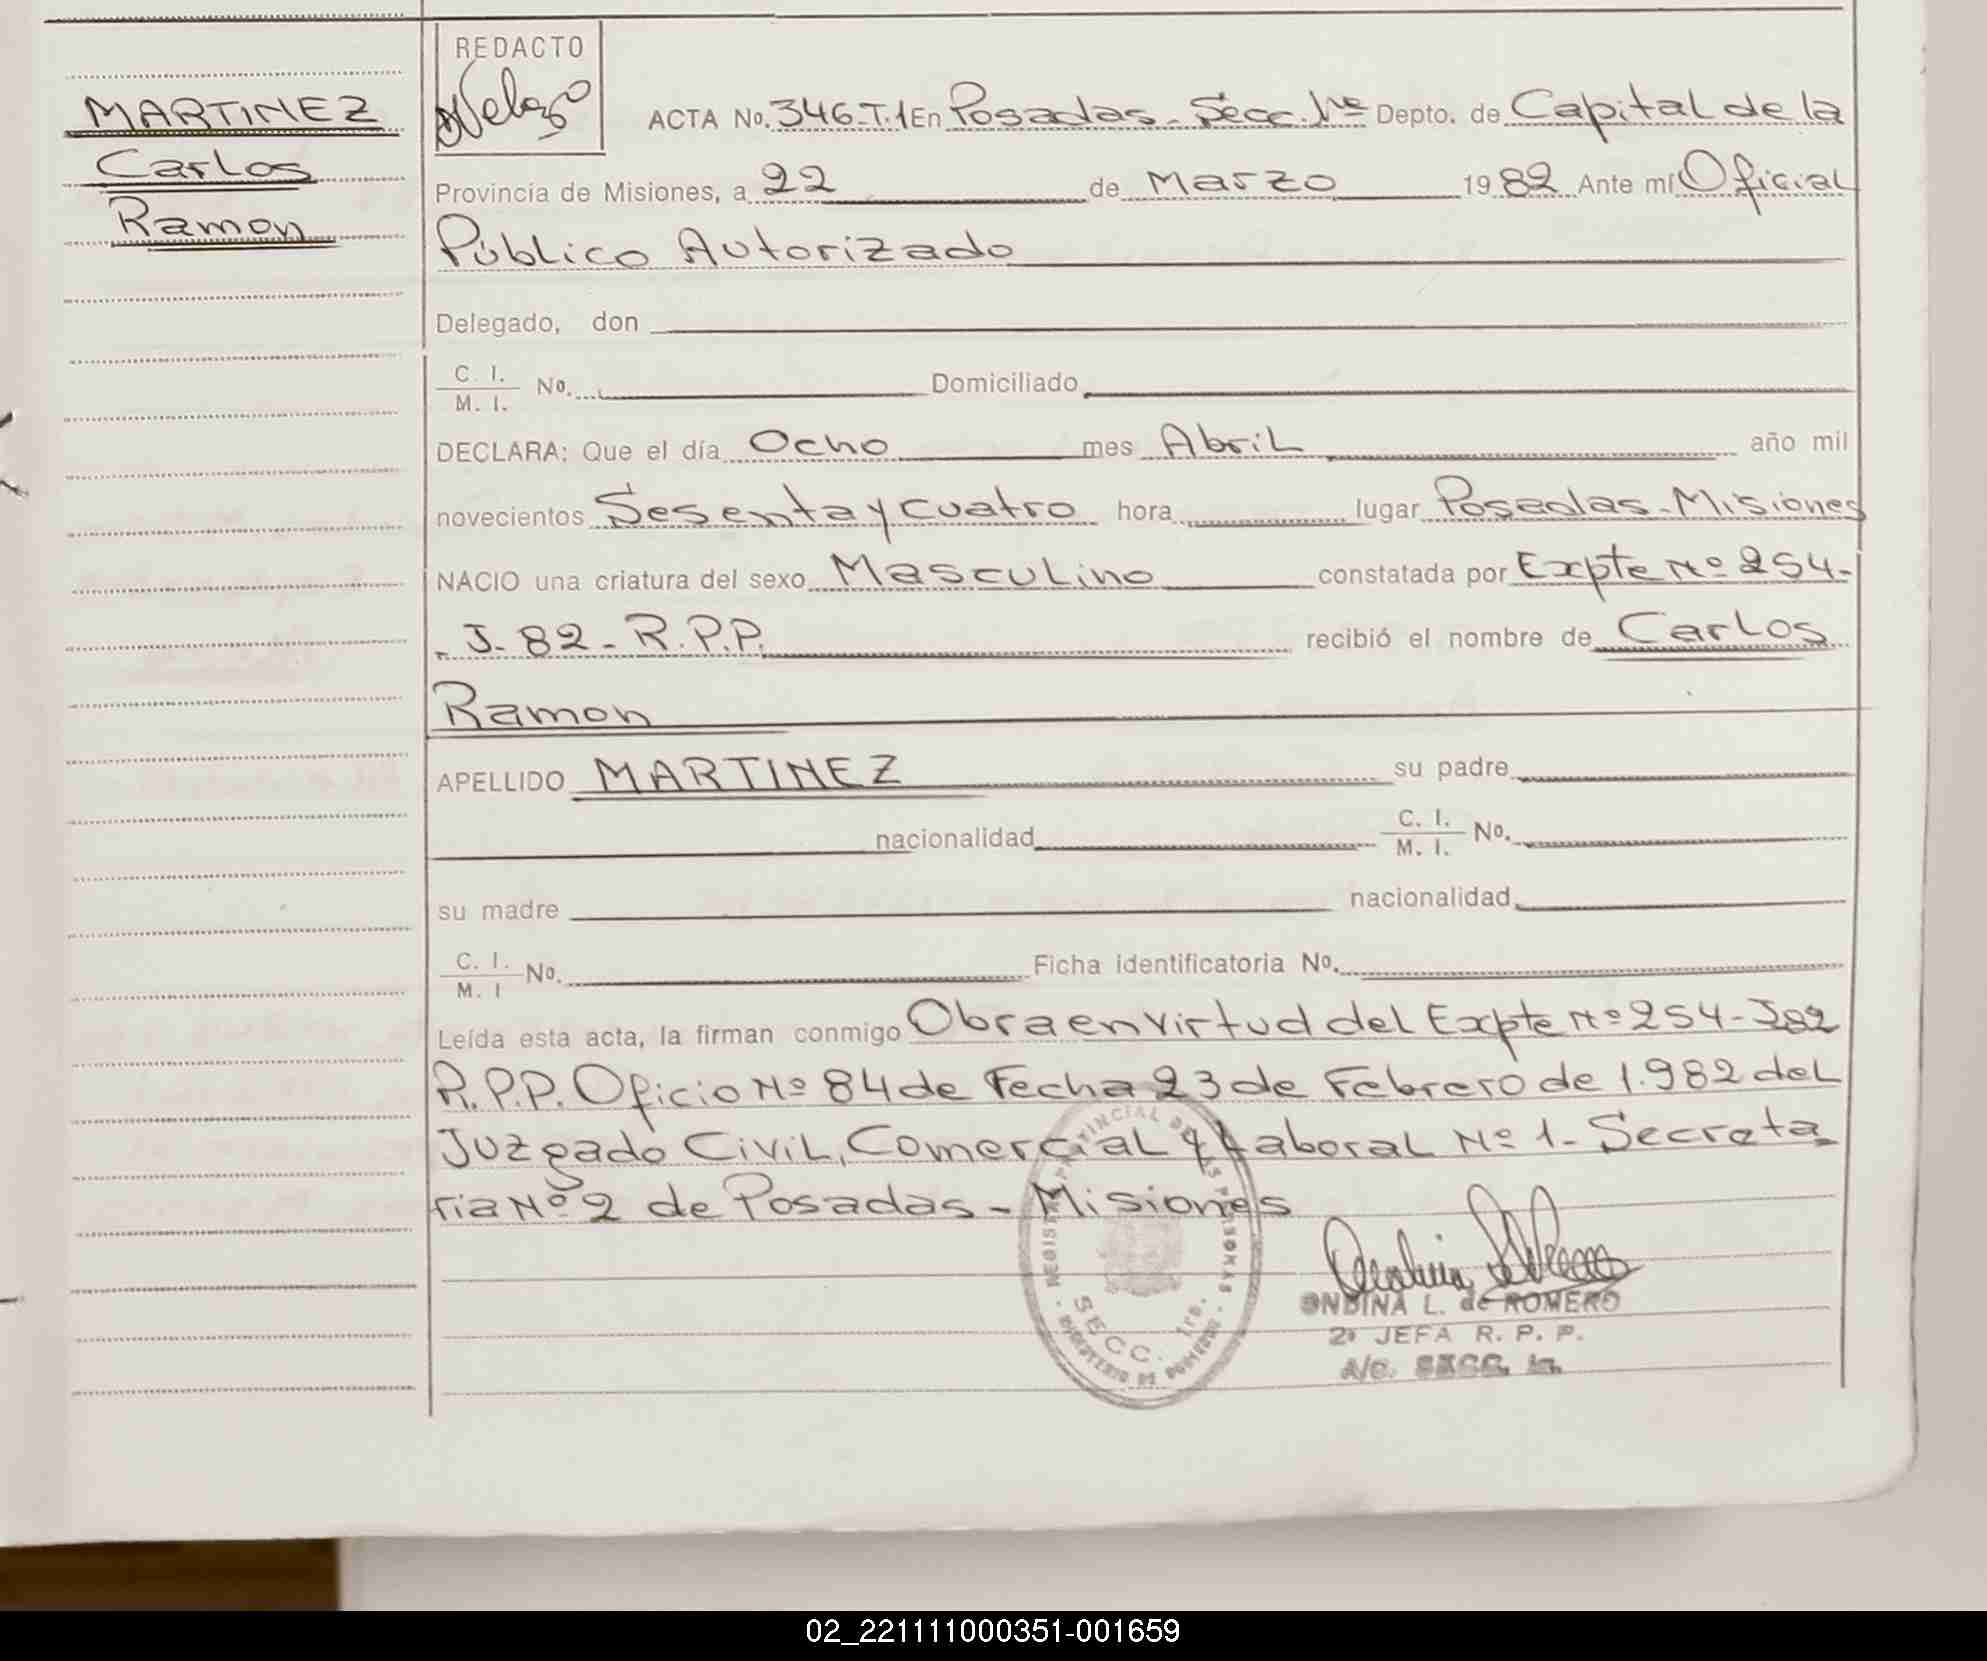 MARTINEZ
Carlos
Ramon
REDACTO
ACTA No. 346-T.1 En Posadas-Secc. 1ra Depto. de Capital de la
Provincia de Misiones, a 22 de Marzo 19 82 Ante mí Oficial
Público Autorizado
Delegado, don
C. I.
M. I. No. Domiciliado
DECLARA: Que el día Ocho mes Abril año mil
novecientos Sesenta y cuatro hora lugar Posadas-Misiones
NACIO una criatura del sexo Masculino constatada por Expte Nº 254-
- J-82-R.P.P. recibió el nombre de Carlos
Ramon
APELLIDO MARTINEZ su padre
nacionalidad C. I.
M. I. No.
su madre nacionalidad
C. I.
M. I No. Ficha identificatoria No.
Leída esta acta, la firman conmigo Obra en virtud del Expte Nº 254-J82
R.P.P. Oficio Nº 84 de Fecha 23 de Febrero de 1.982 del
Juzgado Civil, Comercial y Laboral Nº 1- Secreta
ria Nº 2 de Posadas - Misiones
REGISTRO PROVINCIAL DE LAS PERSONAS
MINISTERIO DE GOBIERNO
SECC. 1ra.
ONDINA L. de ROMERO
2ª JEFA R. P. P.
A/C. SECC. 1a.
02_221111000351-001659